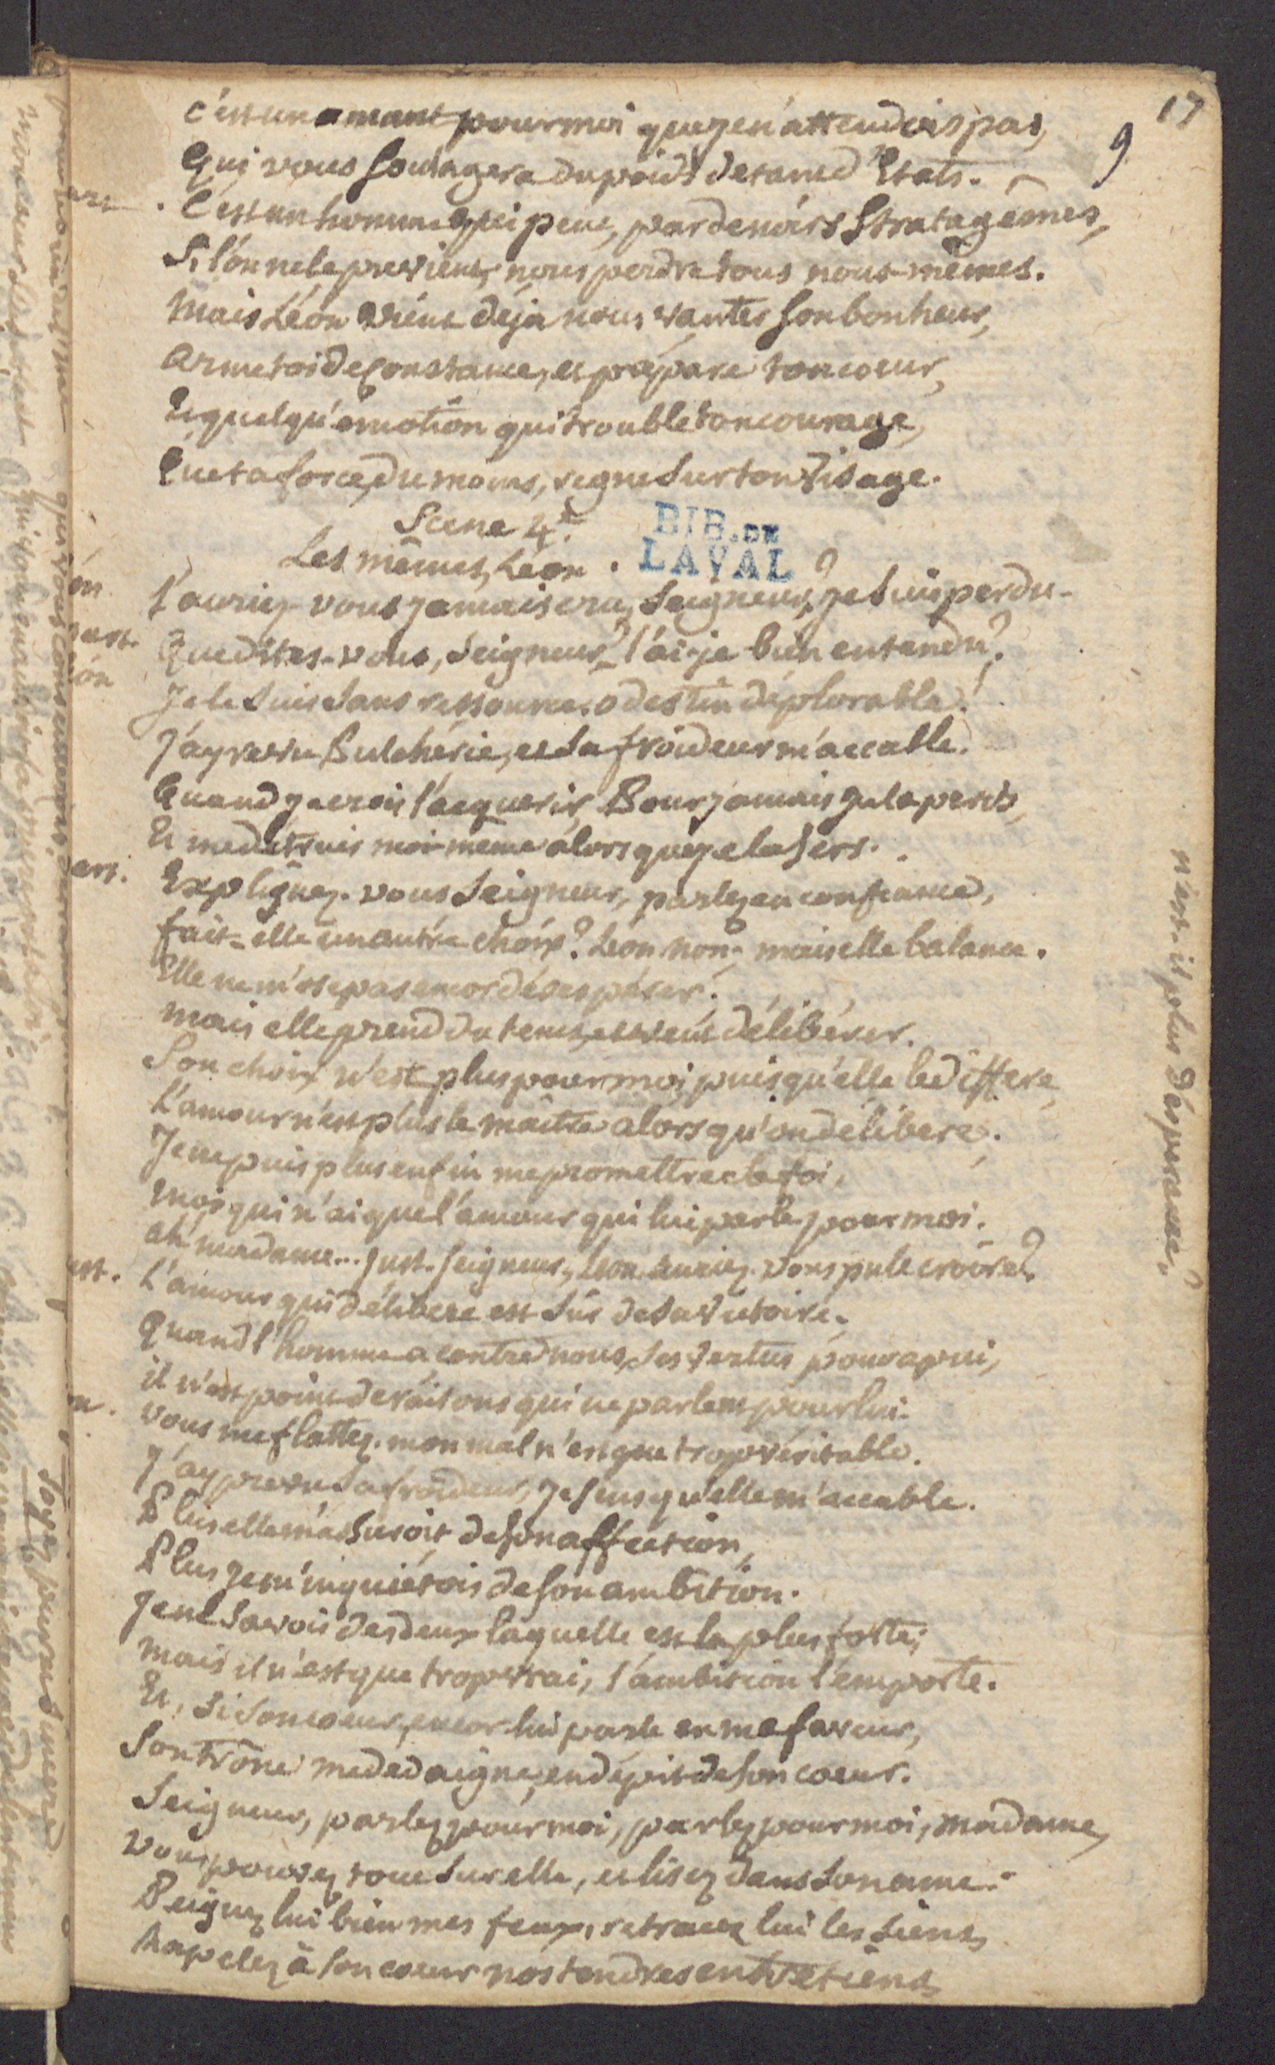 17
9
c'est un amant pour moi que je n'attendois pas,
Qui vous soulagera du poids de tant d'Etats.
C'est un homme qui peut, par de noirs stratagêmes,
Si l'on ne le previent, nous perdre tous nous-mêmes.
Mais Léon vient déja nous vanter son bonheur,
arme toi de constance, et prépare ton coeur,
Et quelqu'émotion qui trouble ton courage,
Que ta force, du moins, regne sur ton visage.
Scene 4e.
Les mêmes, Léon.
BIB. DE
LAVAL
L'auriez-vous jamais cru, Seigneur? je suis perdu.
Que dites-vous, Seigneur? l'ai-je bien entendu?
Je le suis sans ressource. o destin déplorable!
J'ay revu Pulchérie, et sa froideur m'accable.
Quand je crois l'acquerir, Pour jamais je la perds,
Et me detruis moi-même alors que je la sers.
Expliquez-vous Seigneur, parlez en confiance,
fait-elle un autre choix? Léon. non, mais elle balance.
Elle ne m'ose pas encor désespérer.
mais elle prend du tems, et veut délibérer.
Son choix n'est plus pour moi, puisqu'elle le differe,
L'amour n'est plus le maître alors qu'on délibere.
Je ne puis plus enfin me promettre sa foi,
moi qui n'ai que l'amour qui lui parle pour moi.
ah madame... Just. Seigneur, Léon. auriez-vous pu le croire?
L'amour qui délibere est sûr de sa victoire.
Quand l'homme a contre nous, ses vertus pour apui,
il n'est point de raisons qui ne parlent pour lui.
vous me flattez. mon mal n'est que trop véritable.
J'ay prevu sa froideur, Je sens qu'elle m'accable.
Plus elle m'assuroit de son affection,
Plus je m'inquiétois de son ambition.
Je ne savois des deux laquelle est la plus forte;
mais il n'est que trop vrai, l'ambition l'emporte.
Et, si son coeur, encor lui parle en ma faveur,
Son trône me dedaigne, en dépit de son coeur.
Seigneur, parlez pour moi, parlez pour moi, madame,
vous pouvez tout sur elle, et lisez dans son ame.
Peignez lui bien mes feux, retracez lui les siens,
Rapelez à son coeur nos tendres entretiens,
n'est-il plus d'espérance?